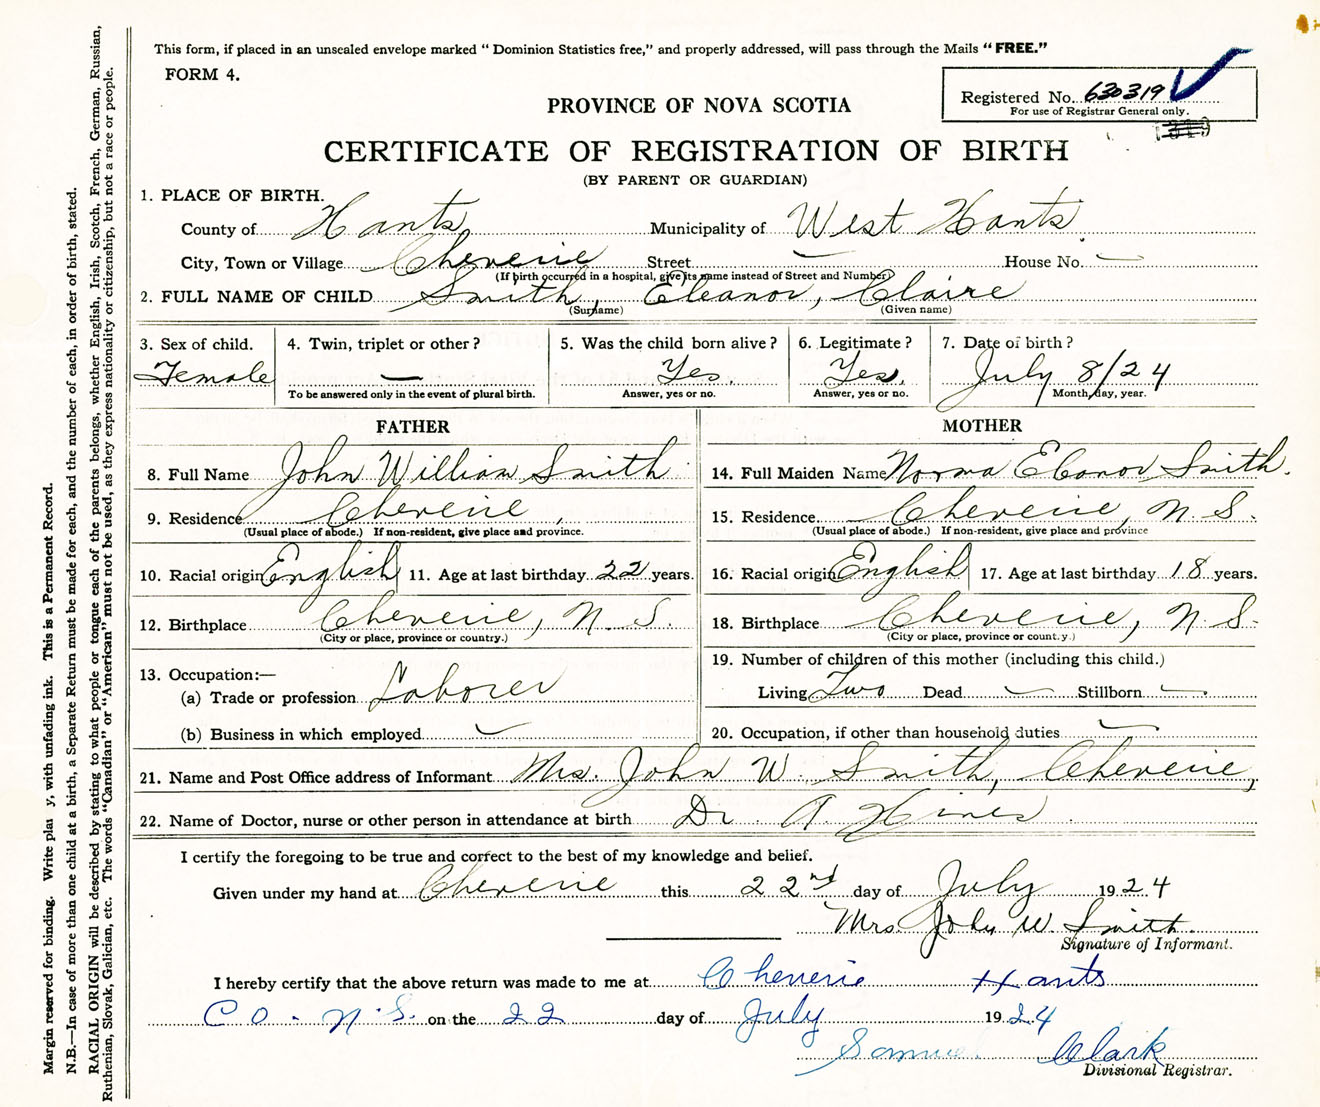 This form, if placed in an unsealed envelope marked " Dominion Statistics free," and properly addressed, will pass through the Mails " FREE."
FORM 4.
Registered No. 630319
For use of Registrar General only.
PROVINCE OF NOVA SCOTIA
CERTIFICATE OF REGISTRATION OF BIRTH
(BY PARENT OR GUARDIAN)
1. PLACE OF BIRTH.
County of Hants Municipality of West Hants
City, Town or Village Cheverie Street — House No. —
(If birth occurred in a hospital, give its name instead of Street and Number)
2. FULL NAME OF CHILD Smith, Eleanor, Claire
(Surname) (Given name)
3. Sex of child. 4. Twin, triplet or other ? 5. Was the child born alive ? 6. Legitimate ? 7. Date of birth ?
Female — Yes. Yes. July 8/24
To be answered only in the event of plural birth. Answer, yes or no. Answer, yes or no. Month, day, year.
FATHER MOTHER
8. Full Name John William Smith 14. Full Maiden Name Norma Elanor Smith.
9. Residence Cheverie, 15. Residence Cheverie, N. S.
(Usual place of abode.) If non-resident, give place and province. (Usual place of abode.) If non-resident, give place and province
10. Racial origin English 11. Age at last birthday 22 years. 16. Racial origin English 17. Age at last birthday 18 years.
12. Birthplace Cheverie, N. S. 18. Birthplace Cheverie, N. S.
(City or place, province or country.) (City or place, province or country.)
13. Occupation:— 19. Number of children of this mother (including this child.)
(a) Trade or profession Laborer Living Two Dead — Stillborn —
(b) Business in which employed — 20. Occupation, if other than household duties —
21. Name and Post Office address of Informant Mrs. John W. Smith, Cheverie,
22. Name of Doctor, nurse or other person in attendance at birth Dr. A. Hines
I certify the foregoing to be true and correct to the best of my knowledge and belief.
Given under my hand at Cheverie this 22nd day of July 1924
Mrs John W. Smith.
Signature of Informant.
I hereby certify that the above return was made to me at Cheverie Hants
Co. N.S. on the 22 day of July 1924
Samuel Clark
Divisional Registrar.
Margin reserved for binding. Write plai y, with unfading ink. This is a Permanent Record.
N.B.—In case of more than one child at a birth, a Separate Return must be made for each, and the number of each, in order of birth, stated.
RACIAL ORIGIN will be described by stating to what people or tongue each of the parents belongs, whether English, Irish, Scotch, French, German, Russian,
Ruthenian, Slovak, Galician, etc. The words "Canadian" or "American" must not be used, as they express nationality or citizenship, but not a race or people.